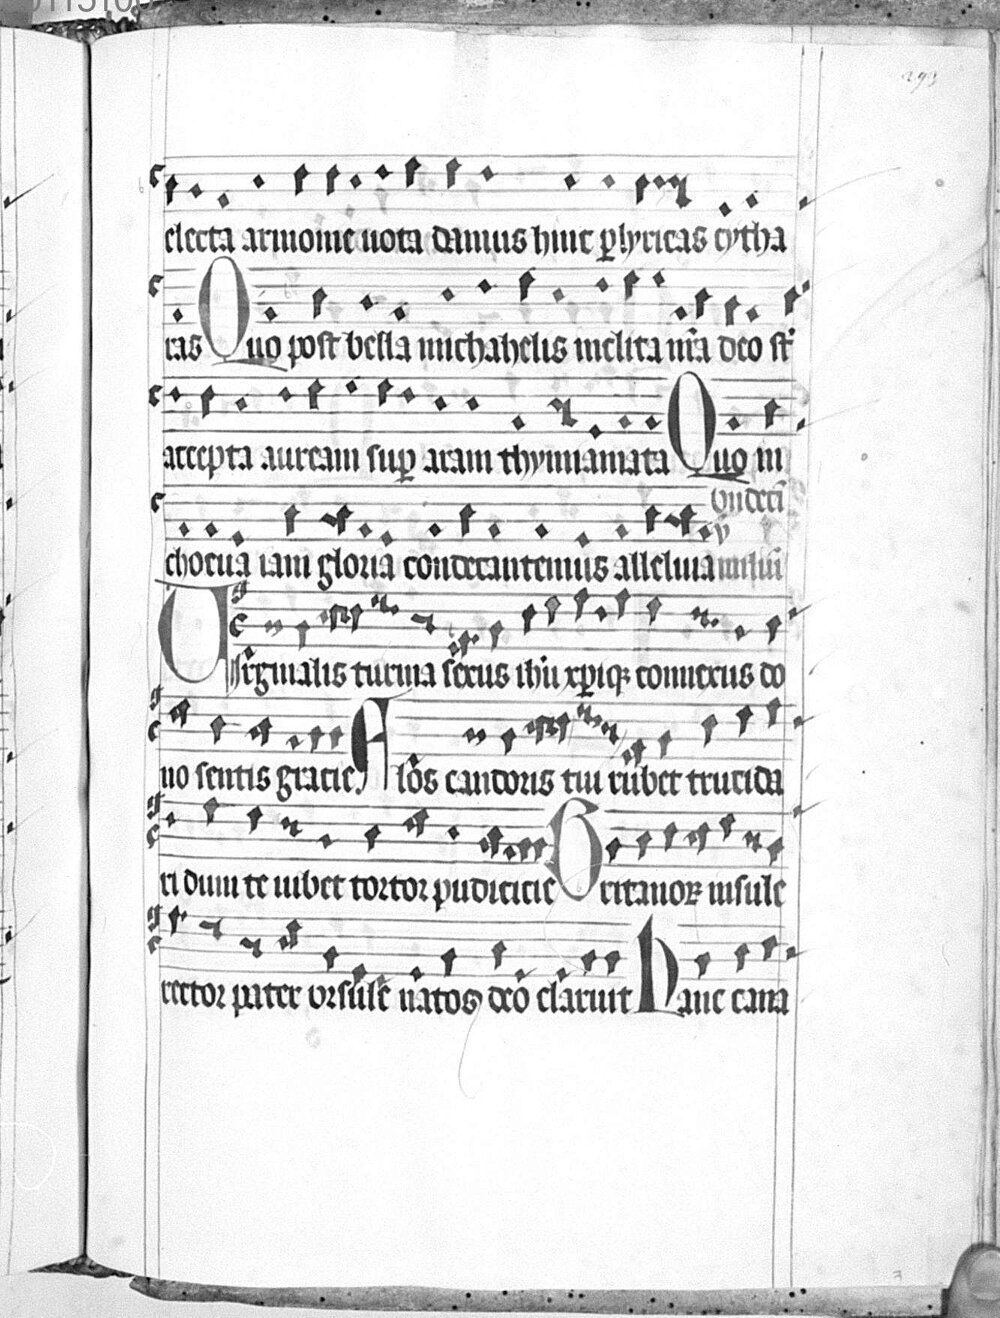 293
electa armonie uota damus hinc p lyricas cytha
ras Quo post bella michahelis inclita nr̄a deo st̄
accepta auream sup aram thymiamata Quo in
vndeci
choeua iam gloria condecantemus alleluia
Uirginalis turma sexus ihū xp̄iq connexus do
no sentis gracie Flos candoris tui rubet trucida
ri dum te iubet tortor pudicicie Britanoꝝ insule
rector pater vrsule natos deo claruit Hanc cana